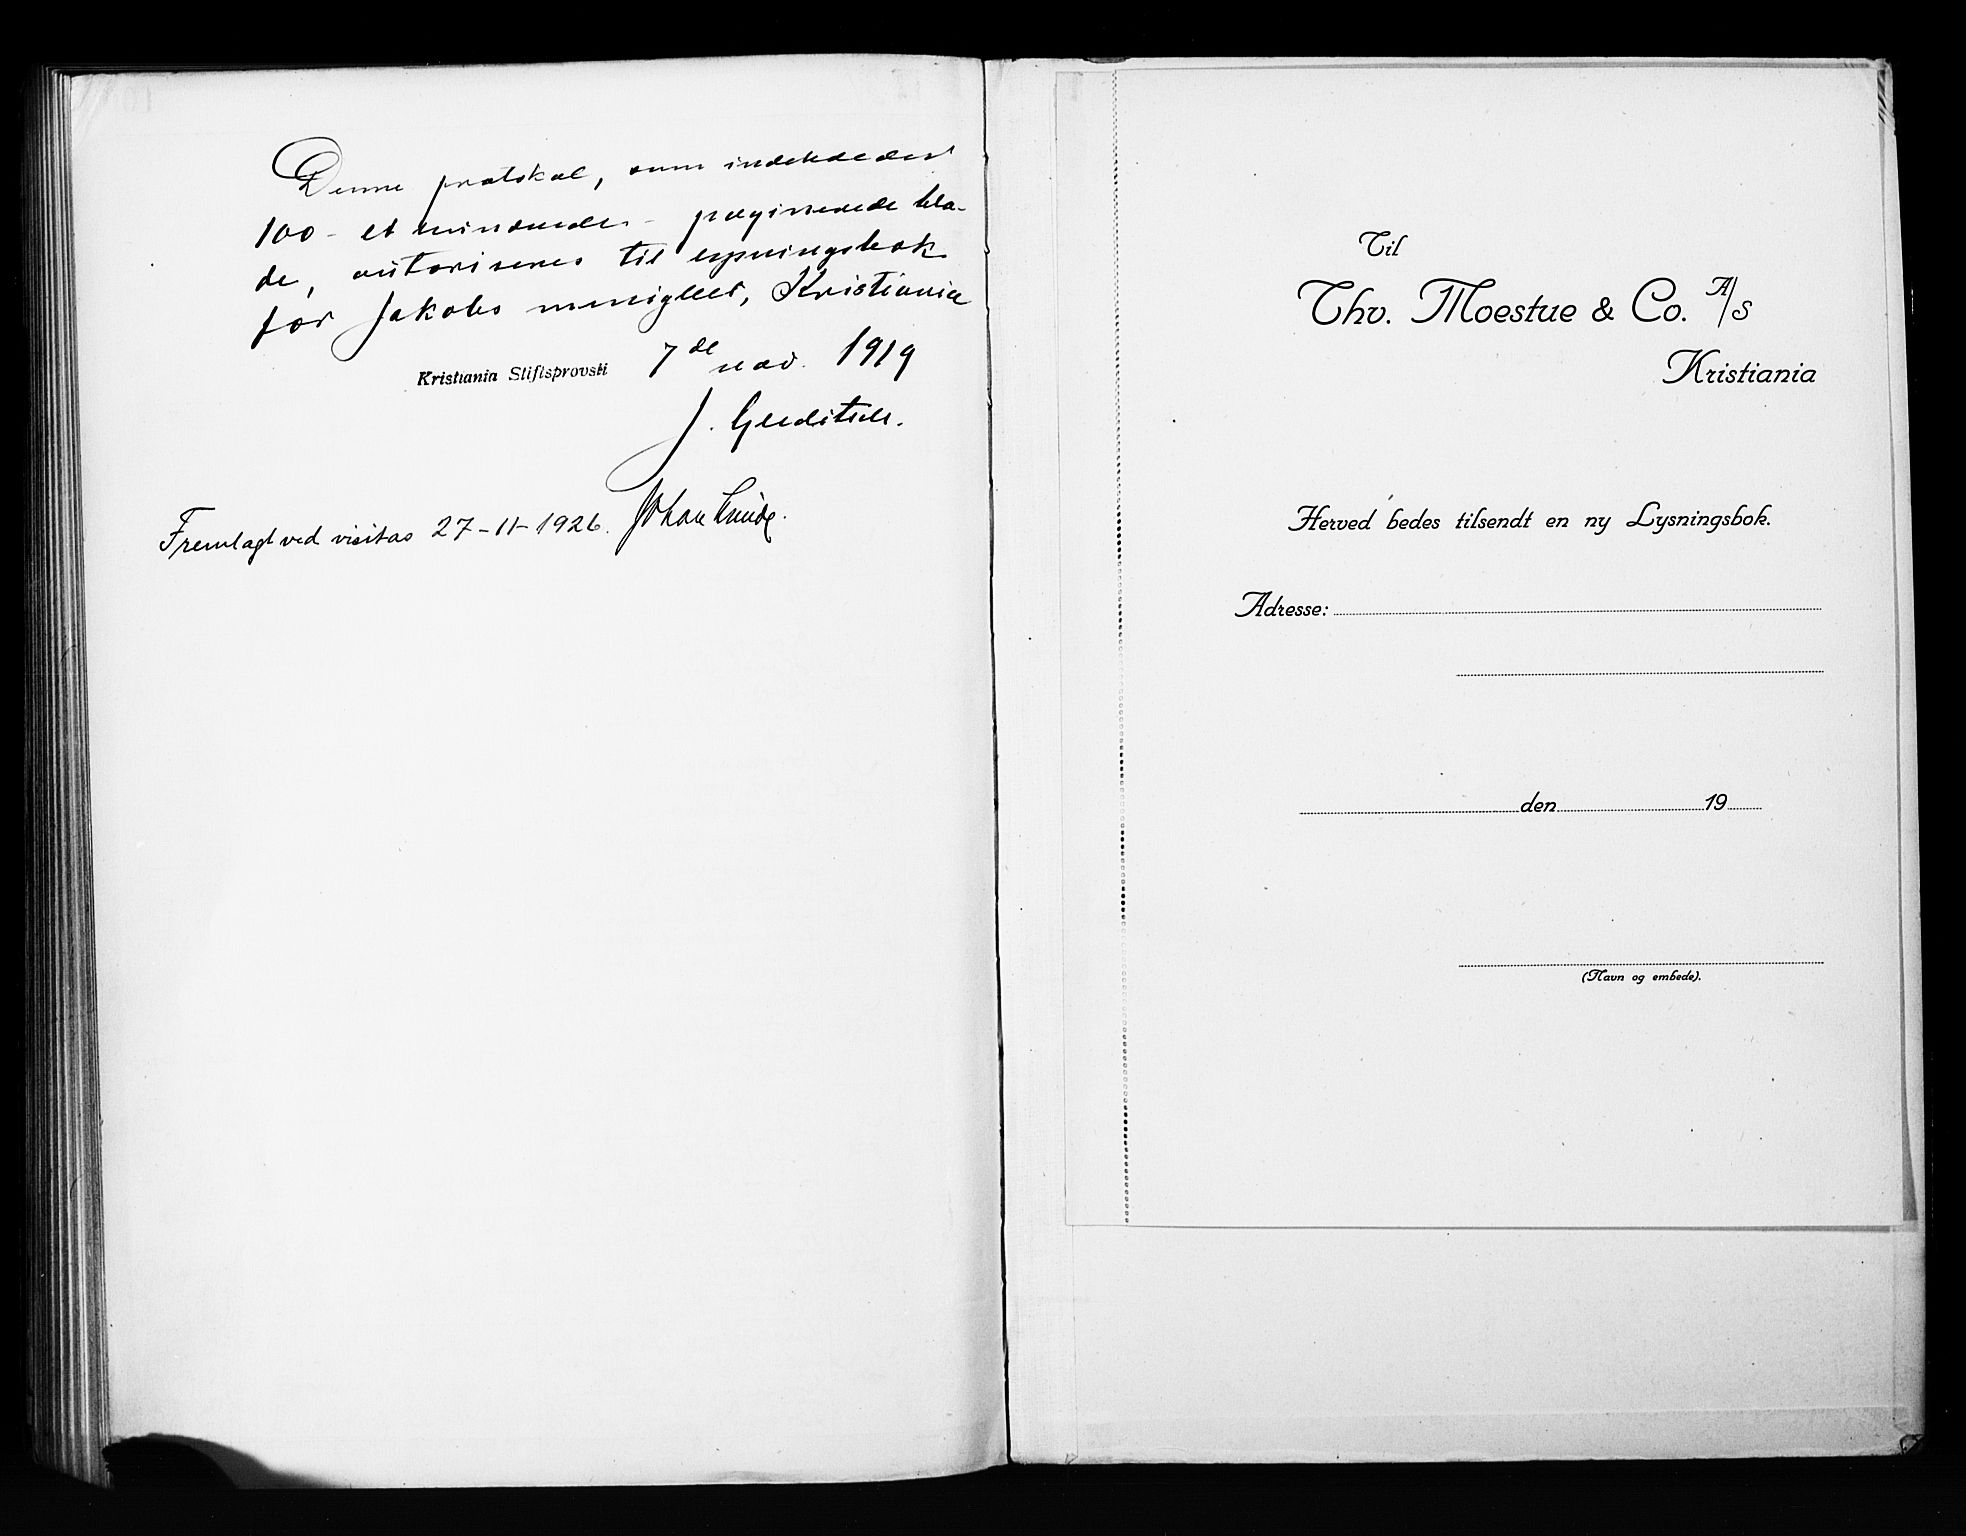 Denne protokol, som indeholder
100 - et hundrede - paginerede bla-
de, autoriseres til lysningsbok
for Jakobs menighet, Kristiania
Kristiania Stiftsprovsti 7de nov. 1919
J. Gleditsch.
Fremlagt ved visitas 27-11-1926. Johan Lunde.
Til
Thv. Moestue & Co. A/S
Kristiania
Herved bedes tilsendt en ny Lysningsbok.
Adresse:
den 19
(Navn og embede).